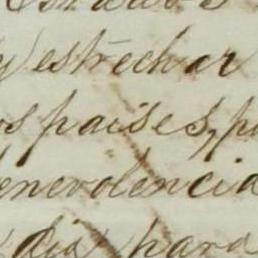 y estrechar
os paises, pa
benevolencia
dia para